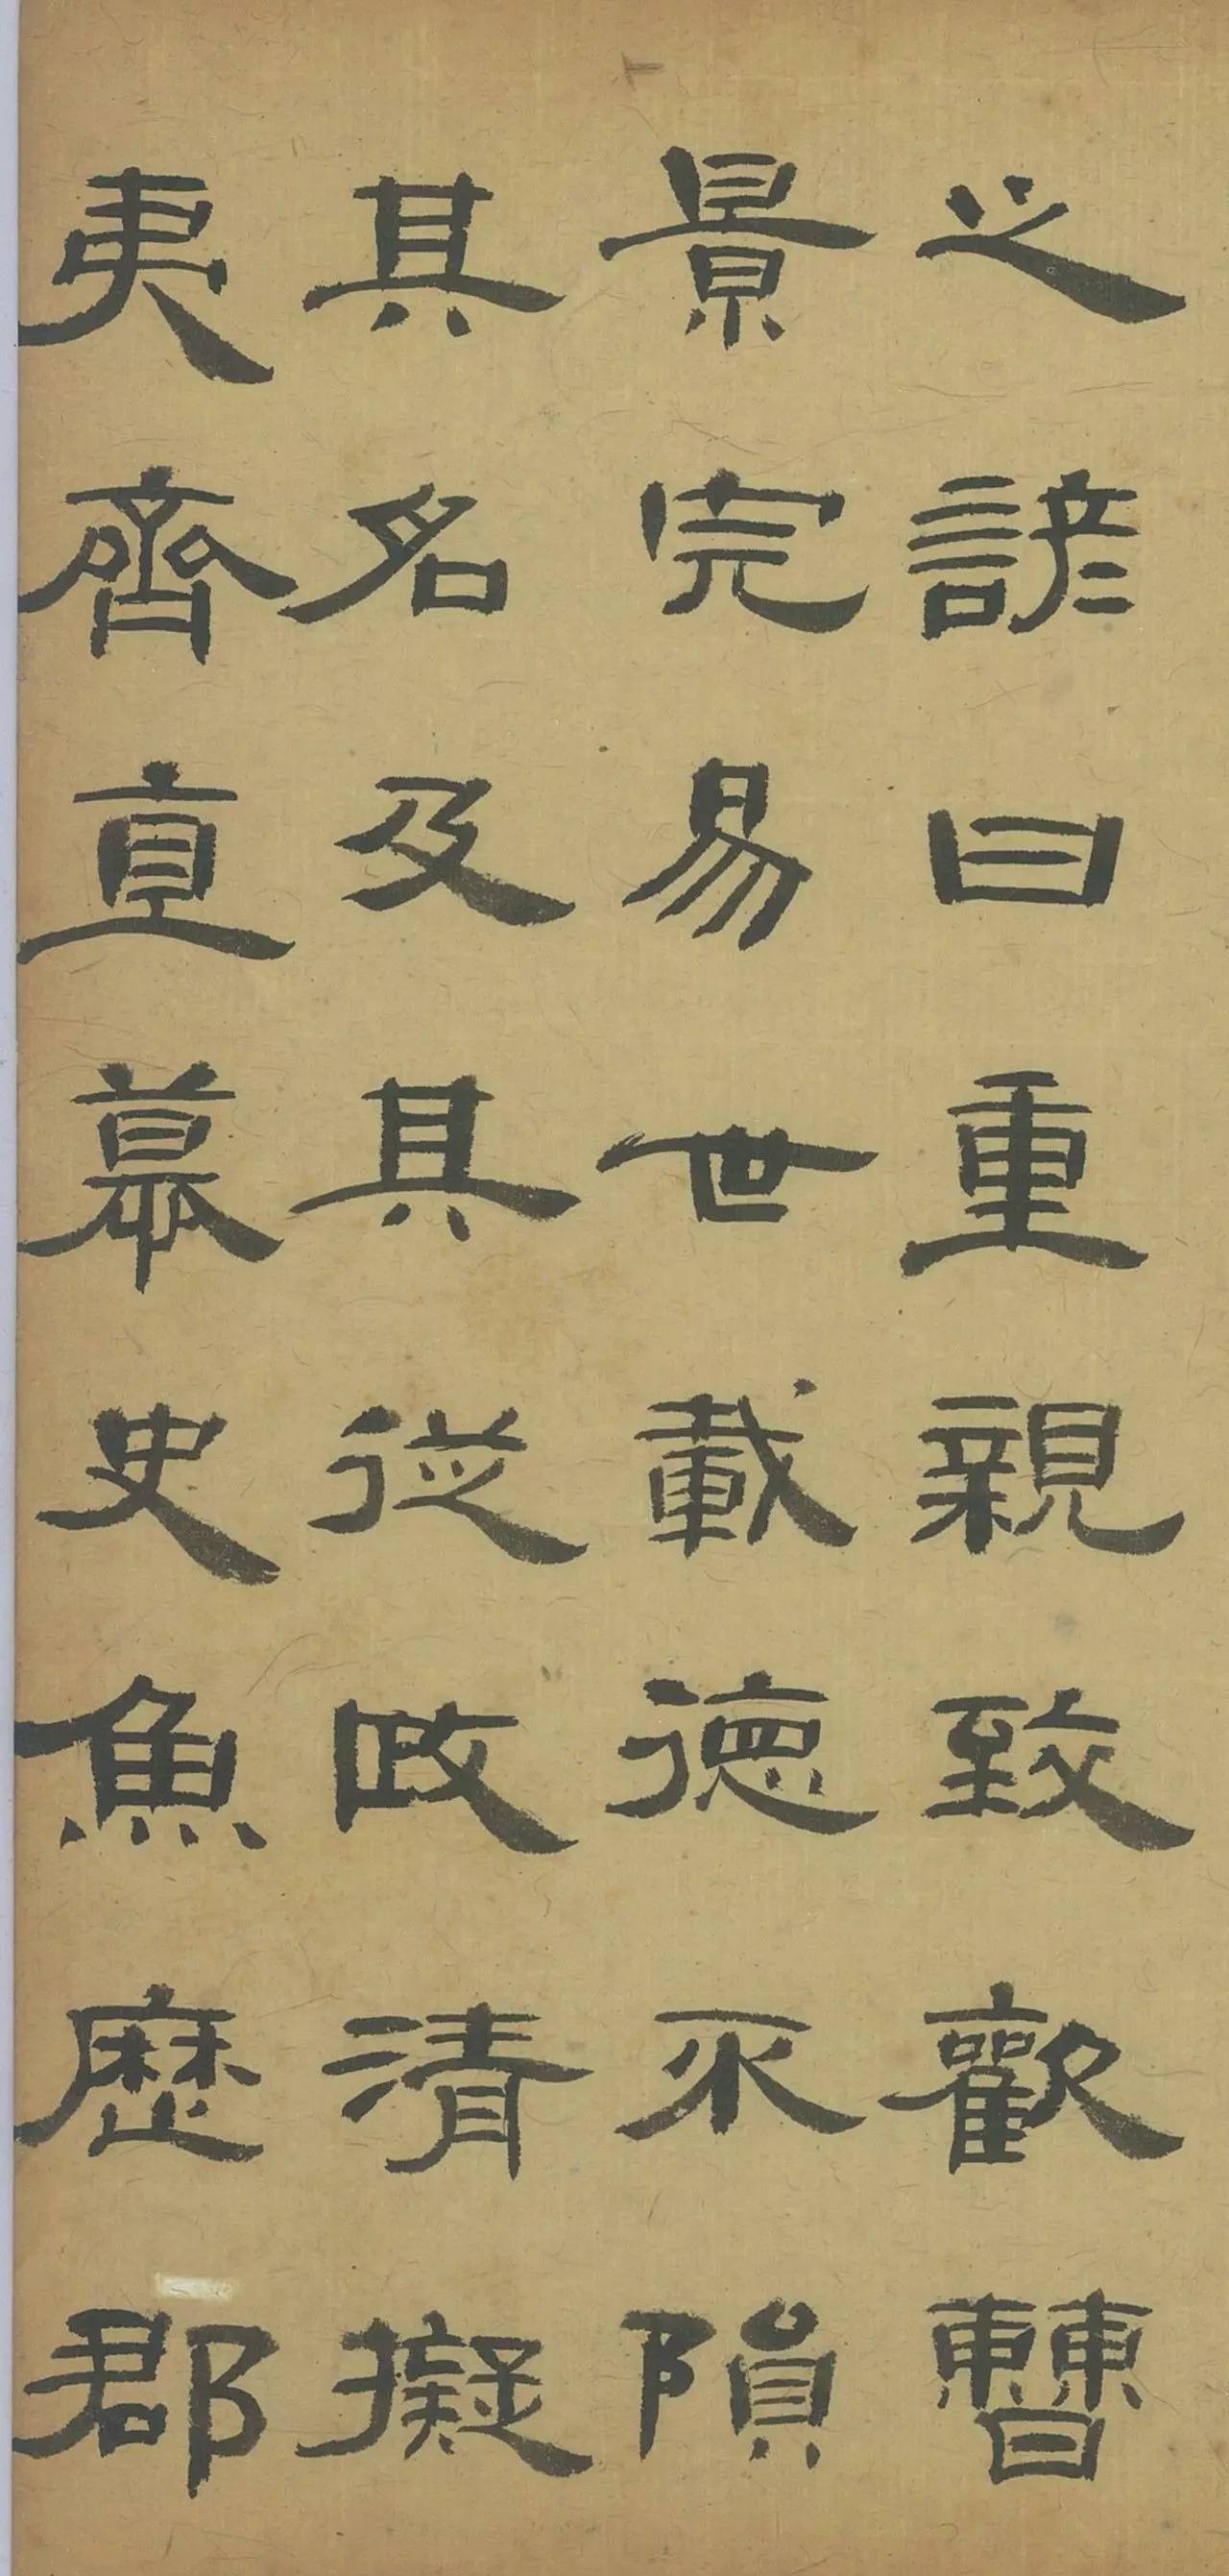 之諺曰重親致歡曹
景完易世載德不隕
其名及其從政清擬
夷齊直慕史魚歷郡